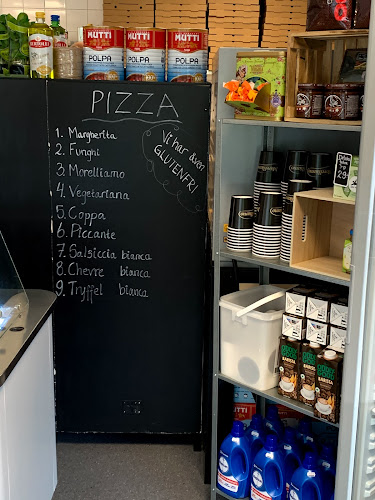 MUTTI
MUTTI
MUTTI
POLPA
POLPA
POLPA
PIZZA
1. Margherita
2. Funghi
3. Morelliamo
4. Vegetariana
5. Coppa
6. Piccante
7. Salsiccia bianca
8. Chevre bianca
9. Tryffel bianca
Vi har även
GLUTENFRI
29:-
BARISTA
MUTTI